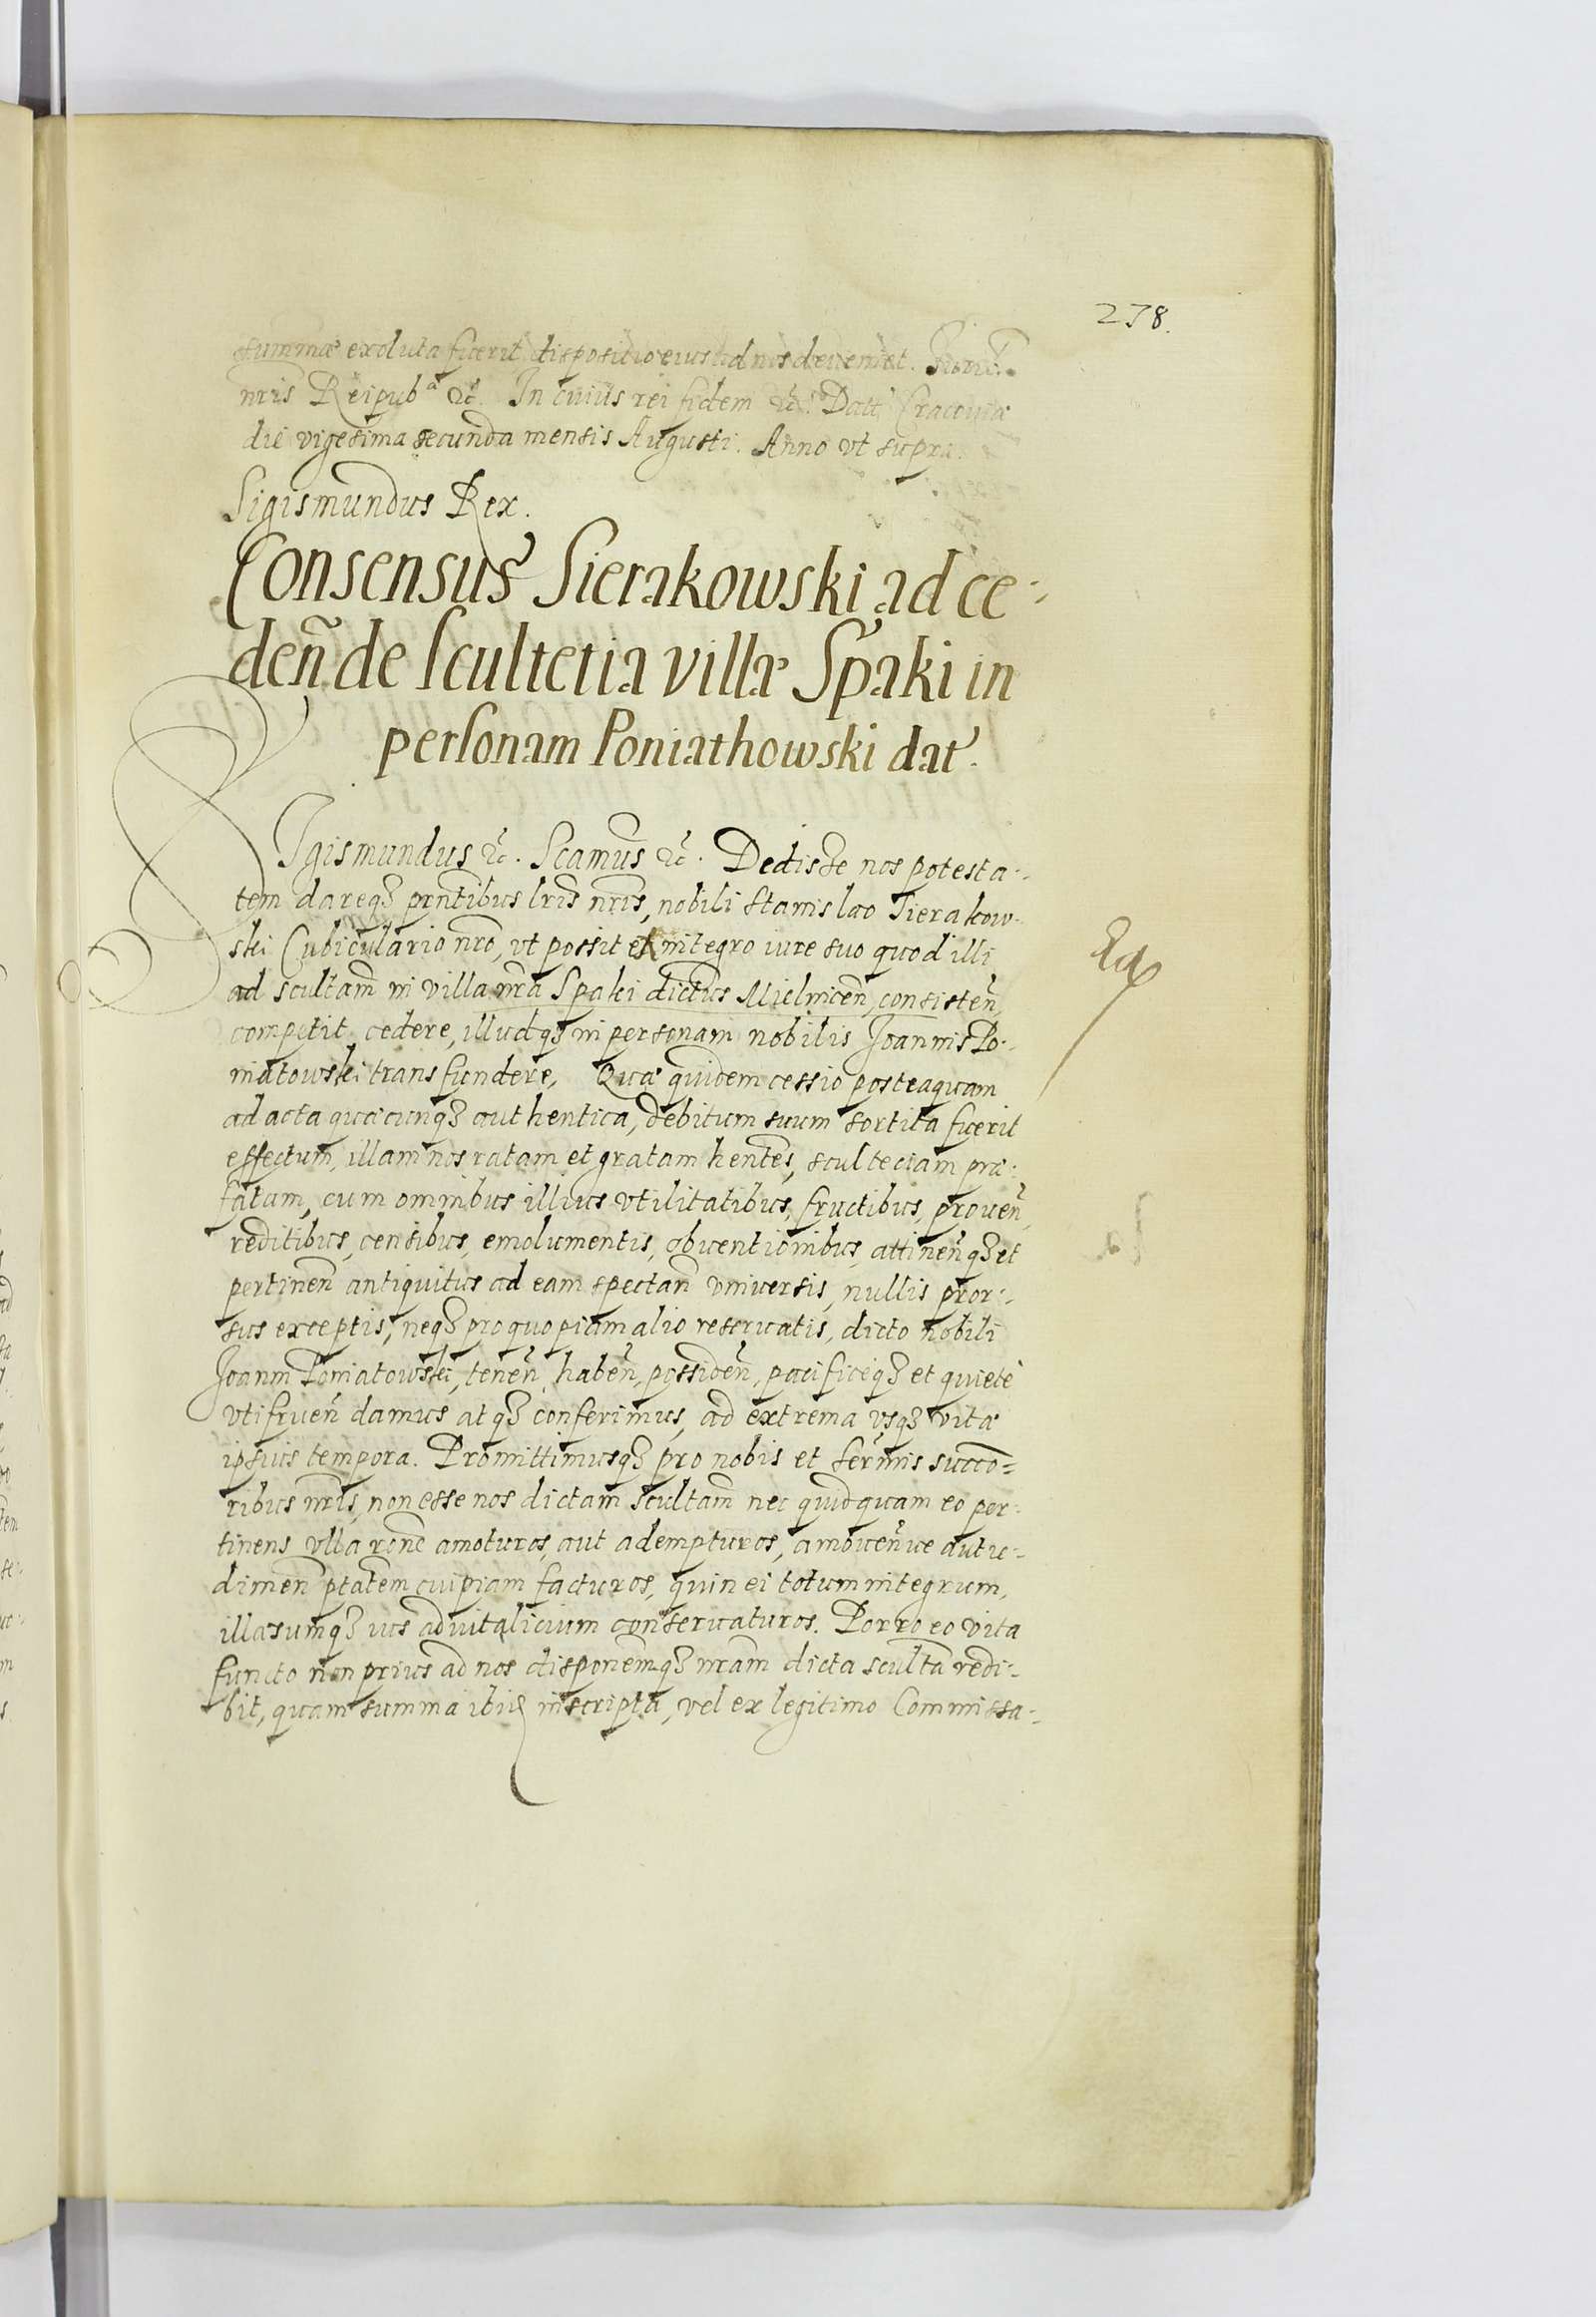 238.
summæ exoluta fuerit, dispositio eius ad nos deveniet. Iurib.
nris Reipubᵃ &c. In cuius rei fidem &c. Datt Cracoviæ
die vigesima secunda mensis Augusti. Anno vt supra
Sigismundus Rex.
Consensus Sierakowski ad ce-
deñ de scultetia villæ Spaki in
personam Poniathowski dat.
SIgismundus &c. Scamus &c. Dedisse nos potesta-
tem dareqꝫ prntibus lris nris, nobili Stanislao Sierakow-
ski Cubiculario nro, vt possit et integro iure suo quod illi
ad scultam in villa nra Spaki dictus Mielnicen, consisteñ,
competit cedere, illudqꝫ in personam nobilis Joannis Po-
niatowski transfundere. Quæ quidem cessio posteaquam
ad acta quæcunqꝫ authentica, debitum suum sortita fuerit
effectum, illam nos ratam et gratam hentes, sculteciam præ-
fatam, cum omnibus illius vtilitatibus, fructibus, proueñ,
reditibus, censibus, emolumentis, obuentionibus, attineñqꝫ et
pertineñ antiquitus ad eam spectañ vniuersis, nullis pror-
sus exceptis, neqꝫ pro quopiam alio reseruatis, dicto nobili
Joanni Poniatowski, teneñ, habeñ, possideñ, pacificeqꝫ et quietè
vtifrueñ damus atqꝫ conferimus, ad extrema vsqꝫ vitæ
ipsius tempora. Promittimusqꝫ pro nobis et sermis succo-
ribus nris, non esse nos dictam scultam nec quidquam eo per-
tinens vlla rone amoturos, aut adempturos, amoueñue aut re-
dimeñ ptatem cuipiam facturos, quin ei totum integrum,
illæsumqꝫ ius aduitalicium conseruaturos. Porro eo vita
functo non prius ad nos disponemqꝫ nram dicta sculta redi-
bit, quam summa ibiꝫ inscripta, vel ex legitimo Commissa-